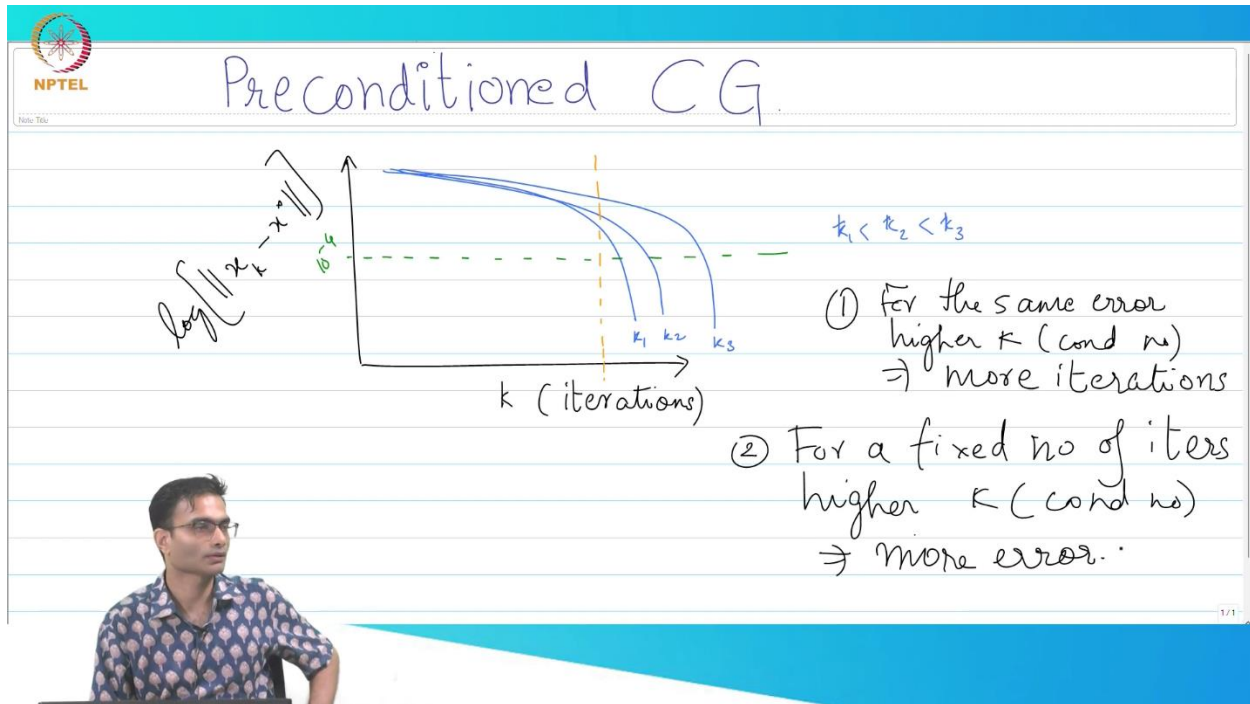 NPTEL
Preconditioned CG.
Note Title
log[||x_k - x*||]
10^-4
κ₁ κ₂ κ₃
k (iterations)
κ₁ < κ₂ < κ₃
① For the same error
higher κ (cond no)
⇒ more iterations
② For a fixed no of iters
higher κ (cond no)
⇒ more error.
1/1